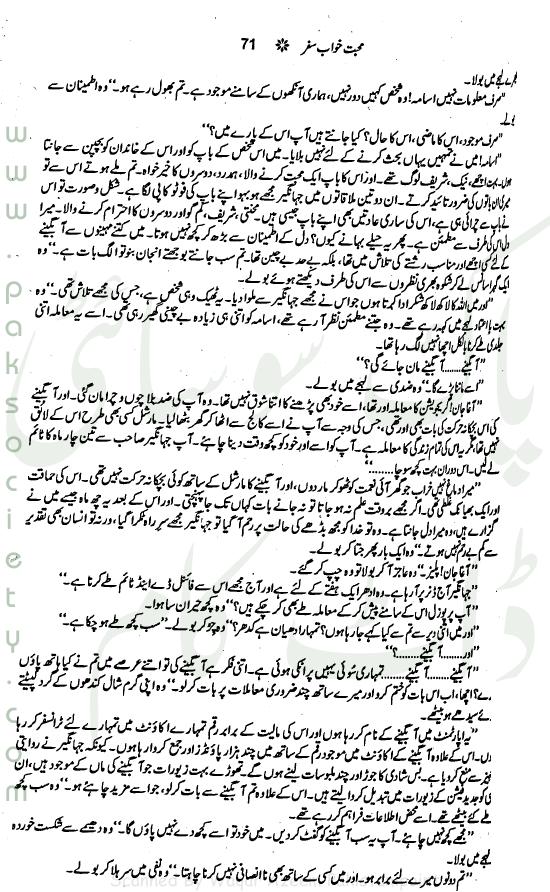 محبت خواب سفر ❋ 71
لہجے میں بولا۔
”صرف معلومات نہیں اسامہ! وہ شخص کہیں دور نہیں، ہماری آنکھوں کے سامنے موجود ہے۔ تم بھول رہے ہو۔“ وہ اطمینان سے
بولے۔
”صرف موجود، اس کا ماضی، اس کا حال؟ کیا جانتے ہیں آپ اس کے بارے میں؟“
”اسامہ! میں نے تمہیں یہاں بحث کرنے کے لئے نہیں بلایا۔ میں اس شخص کے باپ کو اور اس کے خاندان کو بچپن سے جانتا
ہوں۔ بہت اچھے، نیک، شریف لوگ تھے۔ اور اس کا باپ ایک محبت کرنے والا، ہمدرد، دوسروں کا خیر خواہ۔ تم ملے ہوتے اس سے تو
میری ان باتوں کی ضرور تائید کرتے۔ ان دو تین ملاقاتوں میں جہانگیر مجھے ہو بہو اپنے باپ کی فوٹو کاپی لگا ہے۔ شکل و صورت تو اس
نے باپ سے چرائی ہی ہے، اس کی ساری عادتیں بھی اپنے باپ جیسی ہیں۔ محنتی، شریف، کم گو اور دوسروں کا احترام کرنے والا۔ میرا
دل اس کی طرف سے مطمئن ہے۔ پھر یہ حیلے بہانے کیوں؟ دل کے اطمینان سے بڑھ کر کچھ نہیں ہوتا۔ میں کتنے مہینوں سے آبگینے
کے لئے کسی اچھے اور مناسب رشتے کی تلاش میں تھا، بلکہ بے حد بے چین تھا۔ تم سب جانتے بوجھتے انجان بنو تو الگ بات ہے۔“ وہ
ایک گہرا سانس لے کر شکوہ بھری نظروں سے اس کی طرف دیکھتے ہوئے بولے۔
”اور میں اللہ کا لاکھ لاکھ شکر ادا کرتا ہوں جو اس نے مجھے جہانگیر سے ملوا دیا۔ یہ ٹھیک وہی شخص ہے، جس کی مجھے تلاش تھی۔“ وہ
بہت با اعتماد لہجے میں کہہ رہے تھے۔ وہ جتنے مطمئن نظر آ رہے تھے، اسامہ کو اتنی ہی زیادہ بے چینی گھیر رہی تھی۔ اسے یہ معاملہ اتنی
جلدی طے کرنا بالکل اچھا نہیں لگ رہا تھا۔
”آبگینے...... آبگینے مان جائے گی؟“
”اسے ماننا پڑے گا۔“ وہ ضدی سے لہجے میں بولے۔
”آغا جان! گریجویشن کا معاملہ اور تھا، اسے خود بھی پڑھنے کا اتنا شوق نہیں تھا۔ وہ آپ کی ضد بلا چوں و چرا مان گئی۔ اور آبگینے
کی اس بچکانہ حرکت کی بات بھی اور تھی، جس کی وجہ سے آپ نے اسے کالج سے اٹھا کر گھر بٹھا لیا۔ مارشل کسی بھی طرح اس کے لائق
نہیں تھا۔ مگر یہ اس کی تمام زندگی کا معاملہ ہے۔ آپ کو اسے اور خود کو کچھ وقت دینا چاہئے۔ آپ جہانگیر صاحب سے تین چار ماہ کا ٹائم
لے لیں۔ اس دوران بہت کچھ سوچا........“
”میرا دماغ نہیں خراب جو گھر آئی نعمت کو ٹھوکر مار دوں، اور آبگینے کا مارشل کے ساتھ کوئی بچکانہ حرکت نہیں تھی۔ اس کی حماقت
اور ایک بھیانک غلطی تھی۔ اگر مجھے بروقت علم نہ ہو جاتا تو نہ جانے بات کہاں تک جا پہنچتی۔ اور اس کے بعد یہ چھ ماہ جیسے میں نے
گزارے ہیں، وہ میرا دل جانتا ہے۔ وہ تو خدا کو مجھ بڈھے کی حالت پر رحم آ گیا تو جہانگیر مجھے سر راہ ٹکرا گیا، ورنہ تو انسان بھی تقدیر
سے کم بے رحم نہیں ہوتے۔“ وہ ایک بار پھر جتا کر بولے۔
”آغا جان! پلیز۔“ وہ عاجز آ کر بولا تو وہ چپ کر گئے۔
”جہانگیر آج ڈنر پر آ رہا ہے۔ وہ ادھر ایک ہفتے کے لئے ہے اور آج مجھے اس سے فائنل ڈے اینڈ ٹائم طے کرنا ہے۔“
”آپ پرپوزل اس کے سامنے پیش کر کے معاملہ طے بھی کر چکے ہیں؟“ وہ کچھ حیران سا ہوا۔
”اور میں اتنی دیر سے تم سے کیا کہے جا رہا ہوں؟ تمہارا دھیان ہے کدھر؟“ وہ چڑ کر بولے۔ ”سب کچھ طے ہو چکا ہے۔“
”اور...... آبگینے......؟“
”آبگینے...... آبگینے...... تمہاری سوئی یہیں پر اٹکی ہوئی ہے۔ اتنی فکر ہے آبگینے کی تو اتنے عرصے میں تم نے کیا ہاتھ پاؤں
مارے؟ اچھا، اب اس بات کو ختم کرو اور میرے ساتھ چند ضروری معاملات پر بات کر لو۔“ وہ اپنی گرم شال کندھوں کے گرد لپیٹتے
ہوئے سیدھے ہو بیٹھے۔
”یہ اپارٹمنٹ میں آبگینے کے نام کر رہا ہوں اور اس کی مالیت کے برابر رقم تمہارے اکاؤنٹ میں تمہارے لئے ٹرانسفر کر رہا
ہوں۔ اس کے علاوہ آبگینے کے اکاؤنٹ میں موجود رقم کے ساتھ میں چند ہزار پاؤنڈز اور جمع کروا رہا ہوں۔ کیونکہ جہانگیر نے روایتی
جہیز سے منع کر دیا ہے۔ بس شادی کا جوڑا اور چند ملبوسات لینے ہوں گے۔ تھوڑے بہت زیورات جو آبگینے کی ماں کے موجود ہیں، ان
ہی کو جدید فیشن کے زیورات میں تبدیل کروا لیتے ہیں۔ اس کے علاوہ تم آبگینے سے بات کر لو، جو اسے مزید چاہئے ہو۔“ وہ سب کچھ
طے کئے بیٹھے تھے۔ اسے محض اطلاعات فراہم کر رہے تھے۔
”مجھے کچھ نہیں چاہئے۔ آپ یہ سب آبگینے کو گفٹ کر دیں۔ میں خود تو اسے کچھ دے نہیں پاؤں گا۔“ وہ دھیمے سے شکست خوردہ
لہجے میں بولا۔
”تم دونوں میرے لئے برابر ہو۔ اور میں کسی کے ساتھ بھی نا انصافی نہیں کرنا چاہتا۔“ وہ نفی میں سر ہلا کر بولے۔
www.paksociety.com
پاک سوسائٹی
ڈاٹ کام